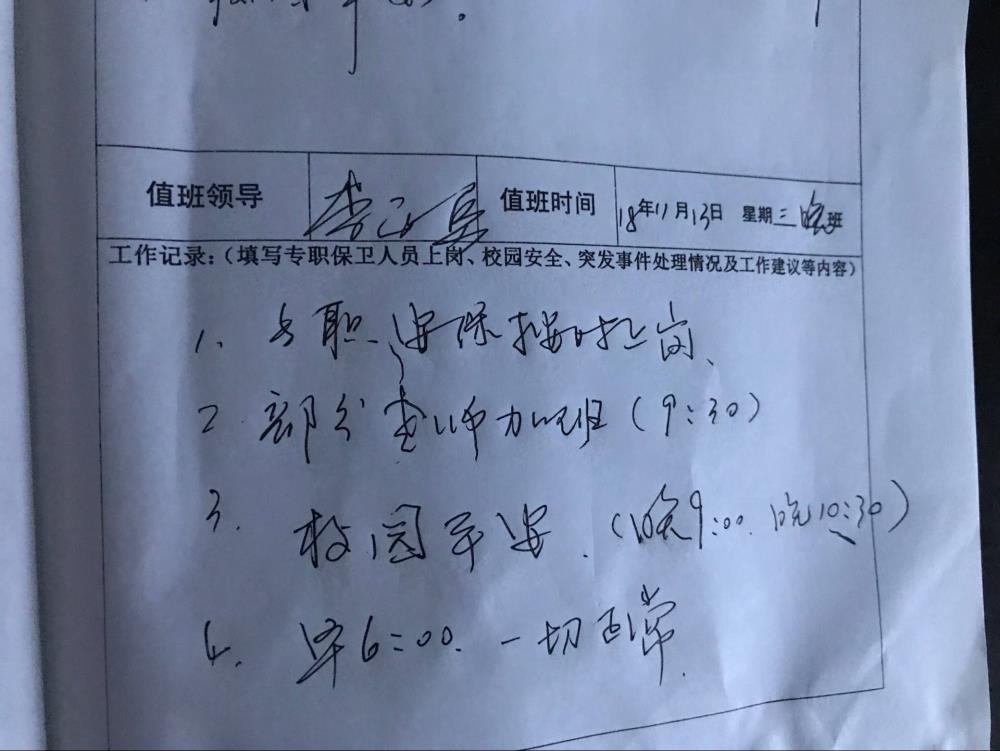 值班领导 李 值班时间 18年11月13日 星期三晚班
工作记录:(填写专职保卫人员上岗、校园安全、突发事件处理情况及工作建议等内容)
1、专职、安保按时上岗、
2.部分老师加晚班(9:30)
3.校园平安.(晚9:00.晚10:30)
4.早6:00.一切正常.